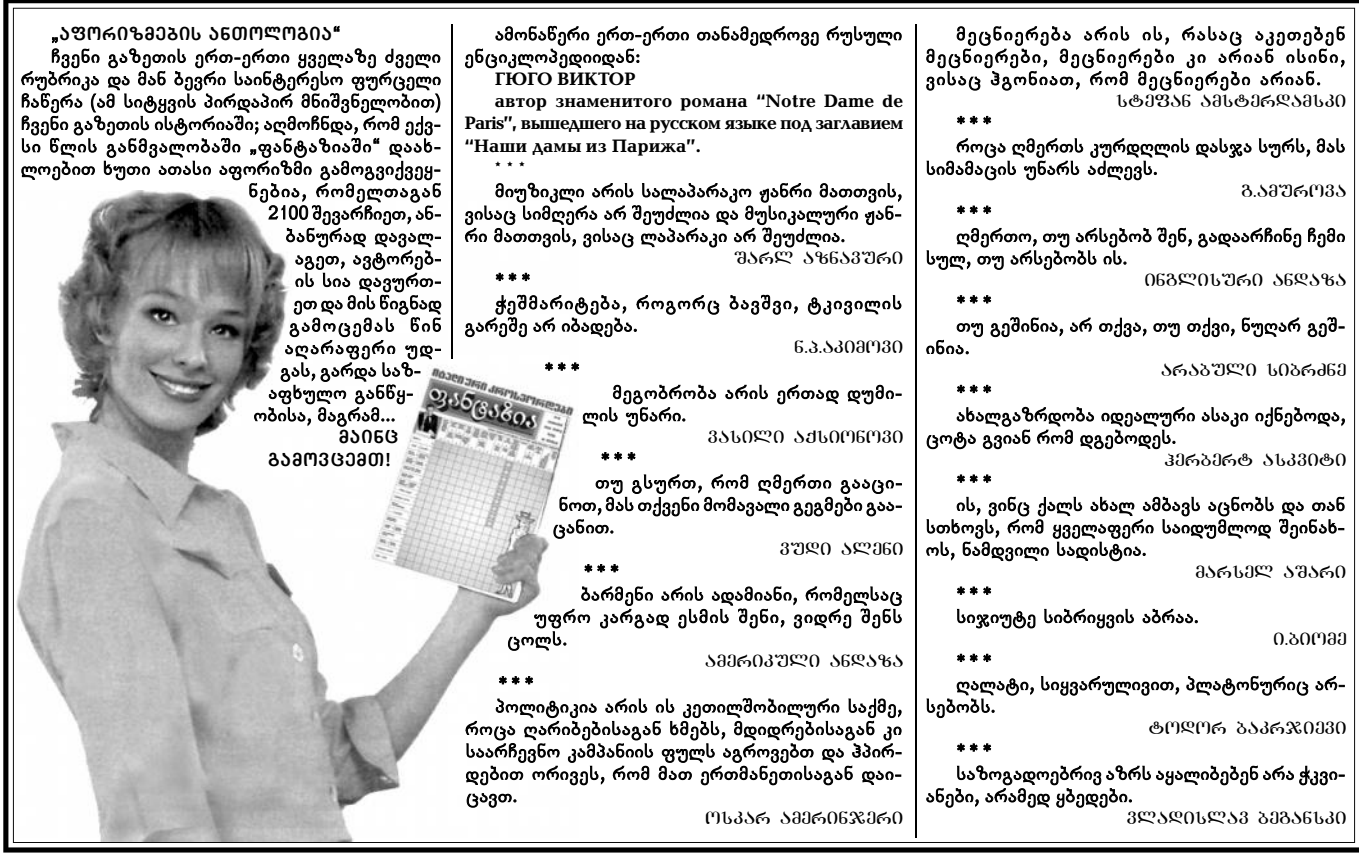 „აფორიზმების ანთოლოგია“
ჩვენი გაზეთის ერთ-ერთი ყველაზე ძველი
რუბრიკა და მან ბევრი საინტერესო ფურცელი
ჩაწერა (ამ სიტყვის პირდაპირ მნიშვნელობით)
ჩვენი გაზეთის ისტორიაში; აღმოჩნდა, რომ ექვ-
სი წლის განმვალობაში „ფანტაზიაში“ დაახ-
ლოებით ხუთი ათასი აფორიზმი გამოგვიქვეყ-
ნებია, რომელთაგან
2100 შევარჩიეთ, ან-
ბანურად დავალ-
აგეთ, ავტორებ-
ის სია დავურთ-
ეთ და მის წიგნად
გამოცემას წინ
აღარაფერი უდ-
გას, გარდა საზ-
აფხულო განწყ-
ობისა, მაგრამ...
მაინც
გამოვცემთ!
იტალიური კროსვორდები
ფანტაზია
ამონაწერი ერთ-ერთი თანამედროვე რუსული
ენციკლოპედიიდან:
ГЮГО ВИКТОР
автор знаменитого романа “Notre Dame de
Paris”, вышедшего на русском языке под заглавием
“Наши дамы из Парижа”.
* * *
მიუზიკლი არის სალაპარაკო ჟანრი მათთვის,
ვისაც სიმღერა არ შეუძლია და მუსიკალური ჟან-
რი მათთვის, ვისაც ლაპარაკი არ შეუძლია.
შარლ აზნავური
***
ჭეშმარიტება, როგორც ბავშვი, ტკივილის
გარეშე არ იბადება.
ნ.პ.აკიმოვი
***
მეგობრობა არის ერთად დუმი-
ლის უნარი.
ვასილი აქსიონოვი
***
თუ გსურთ, რომ ღმერთი გააცი-
ნოთ, მას თქვენი მომავალი გეგმები გაა-
ცანით.
ვუდი ალენი
***
ბარმენი არის ადამიანი, რომელსაც
უფრო კარგად ესმის შენი, ვიდრე შენს
ცოლს.
ამერიკული ანდაზა
***
პოლიტიკია არის ის კეთილშობილური საქმე,
როცა ღარიბებისაგან ხმებს, მდიდრებისაგან კი
საარჩევნო კამპანიის ფულს აგროვებთ და ჰპირ-
დებით ორივეს, რომ მათ ერთმანეთისაგან დაი-
ცავთ.
ოსკარ ამერინჯერი
მეცნიერება არის ის, რასაც აკეთებენ
მეცნიერები, მეცნიერები კი არიან ისინი,
ვისაც ჰგონიათ, რომ მეცნიერები არიან.
სტეფან ამსტერდამსკი
***
როცა ღმერთს კურდღლის დასჯა სურს, მას
სიმამაცის უნარს აძლევს.
გ.ამუროვა
***
ღმერთო, თუ არსებობ შენ, გადაარჩინე ჩემი
სულ, თუ არსებობს ის.
ინგლისური ანდაზა
***
თუ გეშინია, არ თქვა, თუ თქვი, ნუღარ გეშ-
ინია.
არაბული სიბრძნე
***
ახალგაზრდობა იდეალური ასაკი იქნებოდა,
ცოტა გვიან რომ დგებოდეს.
ჰერბერტ ასკვიტი
***
ის, ვინც ქალს ახალ ამბავს აცნობს და თან
სთხოვს, რომ ყველაფერი საიდუმლოდ შეინახ-
ოს, ნამდვილი სადისტია.
მარსელ აშარი
***
სიჯიუტე სიბრიყვის აბრაა.
ი.ბიომე
***
ღალატი, სიყვარულივით, პლატონურიც არ-
სებობს.
ტოდორ ბაკრჯიევი
***
საზოგადოებრივ აზრს აყალიბებენ არა ჭკვი-
ანები, არამედ ყბედები.
ვლადისლავ ბეგანსკი